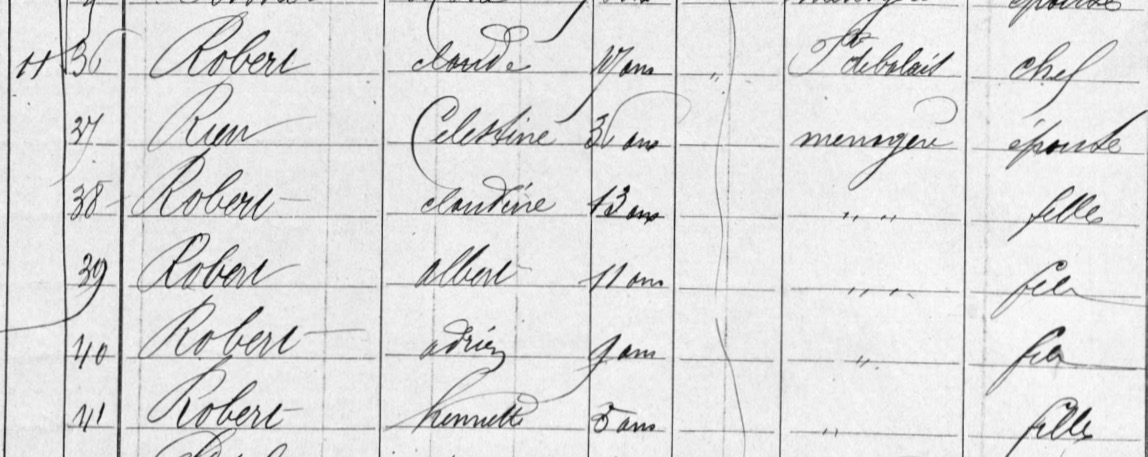 épouse
11 36 Robert claude ans " chef
37 Celestine 36 ans menagere épouse
38 Robert claudine 13 ans " " filles
39 Robert albert 11 ans " " fils
40 Robert adrien 9 ans " fils
41 Robert henriette 5 ans " filles